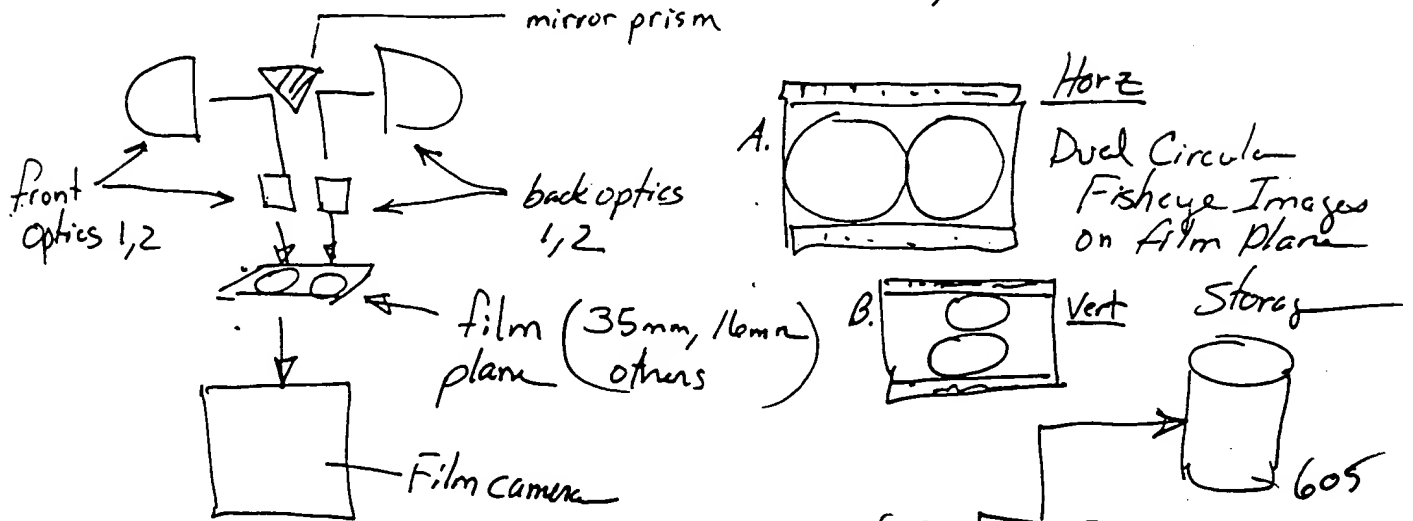 mirror prism
front
optics 1,2
back optics
1,2
film
plane
(35mm, 16mm
others)
Film camera
A.
Horz
Dual Circular
Fisheye Images
on film plane
B.
Vert
Storag
605